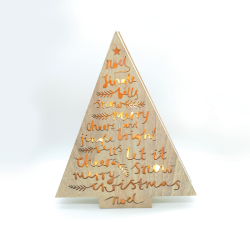 Noel
Jingle
bells
snow
merry
cheers and
jingle bright
let it
cheers snow
merry
christmas
noel